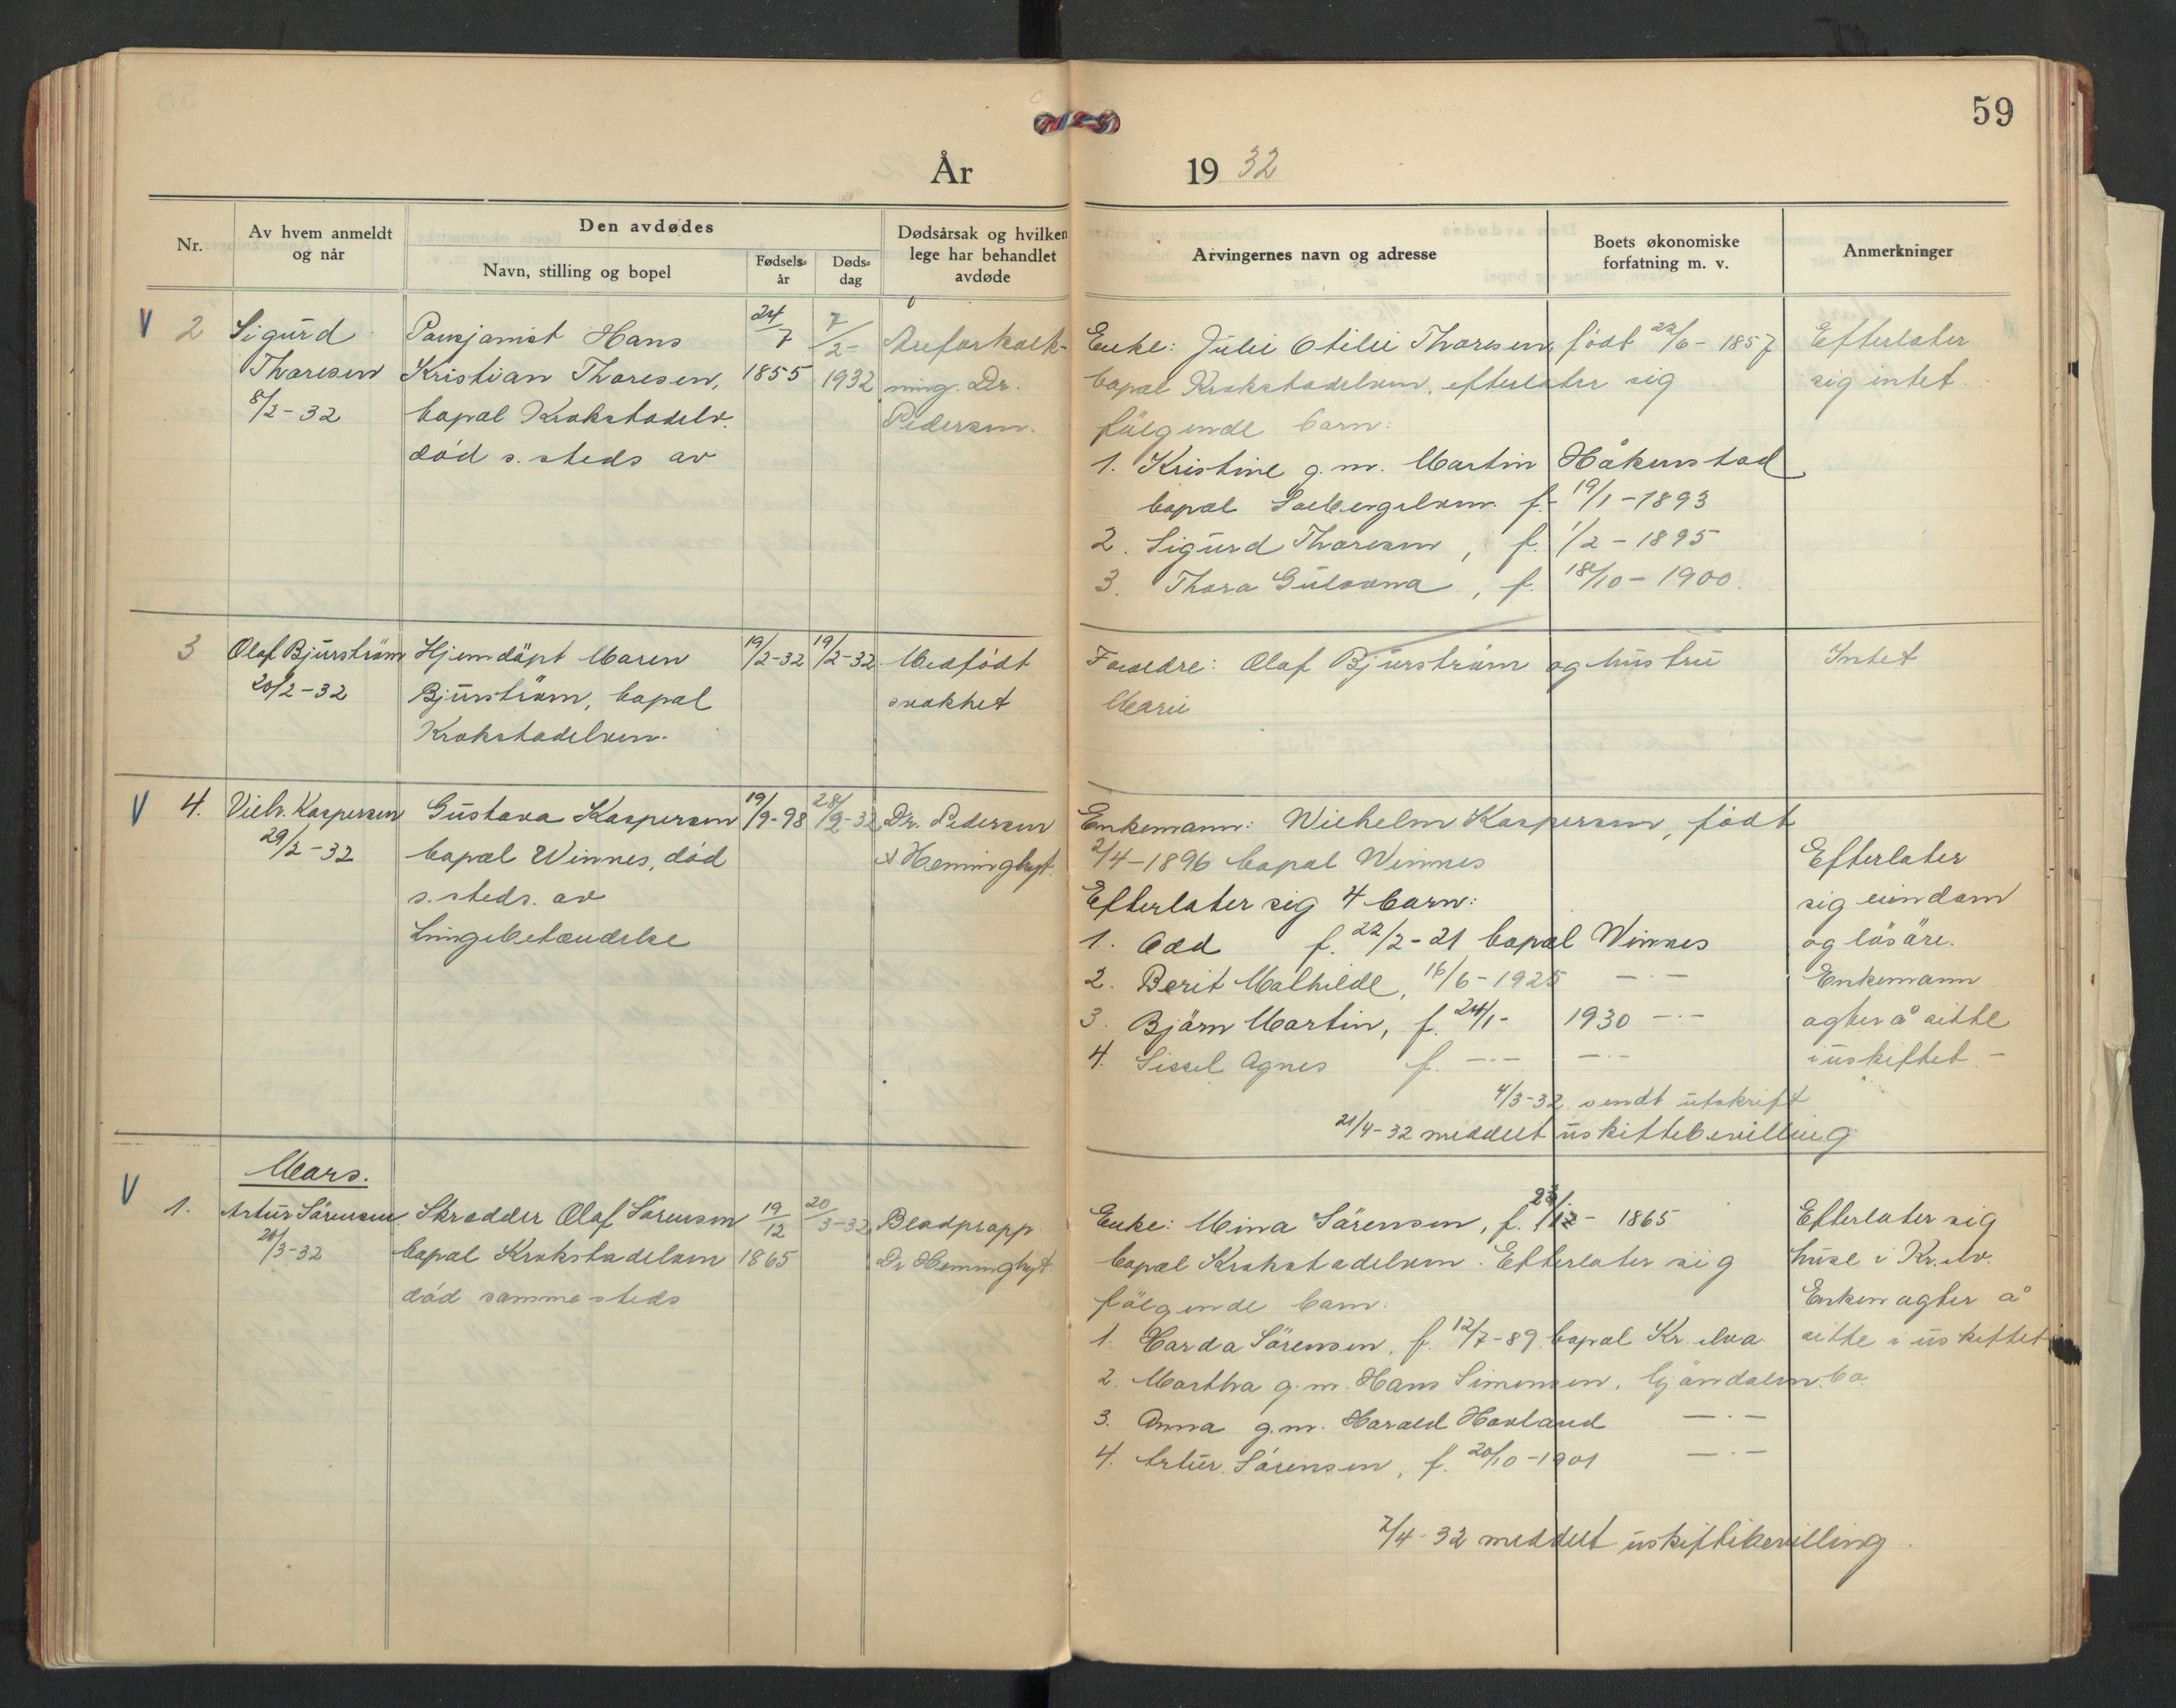 59
År 1932
Nr.
Av hvem anmeldt
og når
Den avdødes
Navn, stilling og bopel
Fødsels-
år
Døds-
dag
Dødsårsak og hvilken
lege har behandlet
avdøde
Arvingernes navn og adresse
Boets økonomiske
forfatning m. v.
Anmerkninger
V 2
Sigurd
Thoresen
8/2-32
Pensjonist Hans
Kristian Thoresen,
bopæl Krokstadelv.
död s. steds av
24/7
1855
7/2-
1932
Areforkalk-
ning. Dr.
Pedersen.
Enke: Julie Otilie Thoresen, født 22/6-1857
bopæl Krokstadelven, efterlater sig
fölgende barn:
1. Kristine g.m. Martin Håkenstad
bopæl Solbergelven f. 19/1-1893
2. Sigurd Thoresen, f. 1/2-1895
3. Thora Gulovna, f. 18/10-1900.
Efterlater
sig intet.
3
Olaf Bjurström
20/2-32
Hjemdöpt Maren
Bjurström, bopæl
Krokstadelven.
19/2-32
19/2-32
Medfödt
svakhet
Foreldre: Olaf Bjurström og hustru
Marie
Intet
V 4.
Vilh. Kaspersen
29/2-32
Gustava Kaspersen
bopæl Winnes, död
s. steds. av
Lungebetændelse
19/9-98
28/2-32
Dr. Pedersen
& Hemingbyt.
Enkemann: Wilhelm Kaspersen, født
2/4-1896 bopæl Winnes
Efterlater sig 4 barn:
1. Odd f. 22/2-21 bopæl Winnes
2. Berit Mathilde, 16/6-1925 —·—
3. Björn Martin, f. 24/1-1930 —·—
4. Sissel Agnes f. —·— —·—
4/3-32 sendt utskrift
21/4-32 meddelt uskiftebevilling
Efterlater
sig eiendom
og lösöre.
Enkemann
agter å sitte
i uskiftet.—
Mars.
V 1.
Artur Sörensen
20/3-32
Skrædder Olaf Sörensen
bopæl Krokstadelven
död sammesteds
19/12
1865
20/3-32
Blodpropp
Dr Hemingbyt.
Enke: Mina Sörensen, f. 23/12-1865
bopæl Krokstadelven. Efterlater sig
fölgende barn:
1. Harda Sörensen, f. 12/7-89. bopæl Kr. elva
2. Martha g.m. Hans Simensen, Mjöndalen. bo.
3. Anna g.m. Harald Hovland —·—
4. Artur Sörensen, f. 20/10-1901 —·—
7/4-32 meddelt uskiftebevilling.
Efterlater sig
huse i Kr. elv.
Enken agter å
sitte i uskiftet